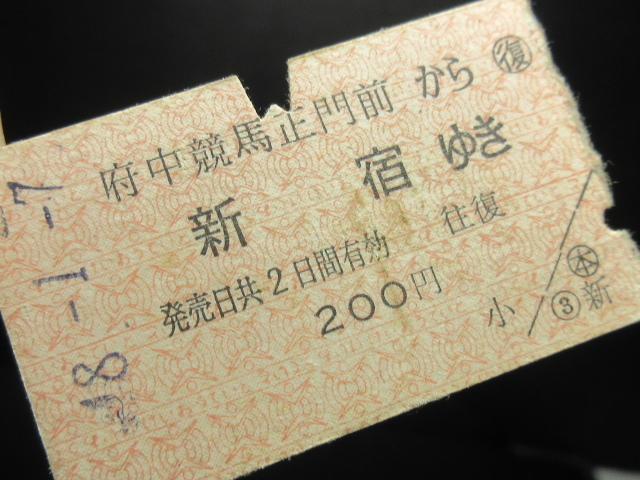 府中競馬正門前 から ㊝復
新宿 ゆき
発売日共2日間有効 往復
200円
小
㊍本
③新
48.-1.-7